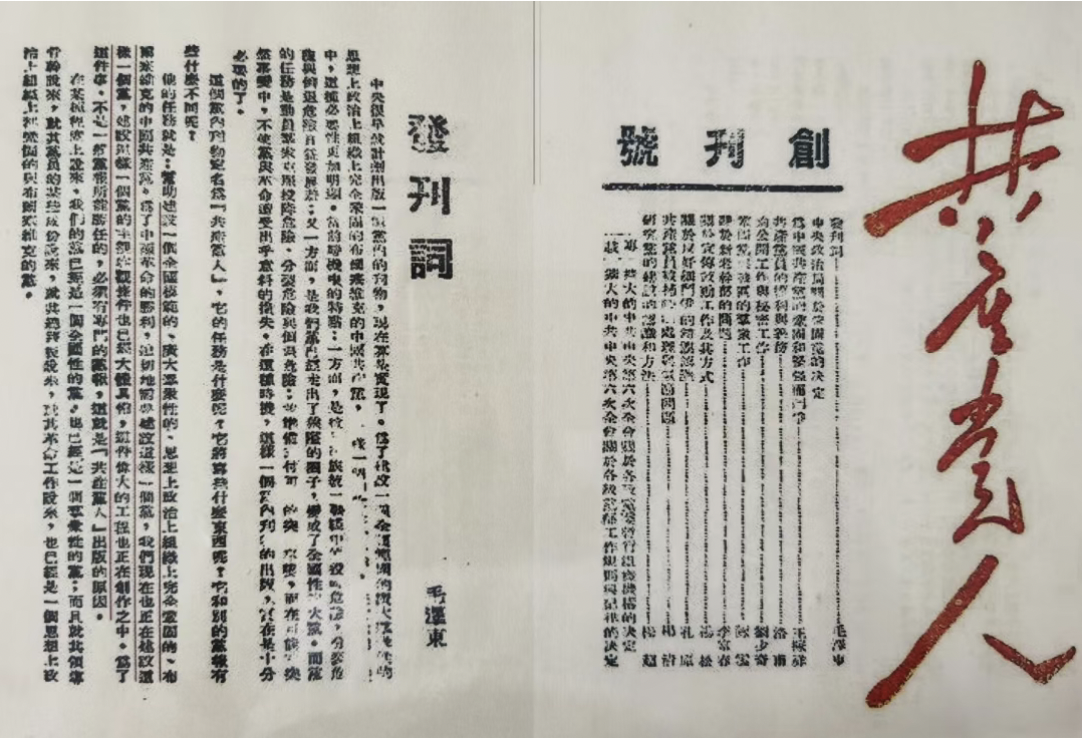 共产党人
創刊號
發刊詞 毛澤東
中央政治局關於鞏固黨的決定
爲中國共產黨的鞏固和堅强而鬥爭 王稼祥
共產黨員的權利與義務 洛甫
論公開工作與秘密工作 劉少奇
的羣衆工作 陳雲
新幹部的問題 李富春
關於宣傳鼓動工作及其方式 楊松
關於反奸細鬥爭的 孔原
共產黨員 處理 問題
研究黨的建設的 和方法
擴大的中共中央第六次全會關於各 黨委暫行組織機構的決定
擴大的中共中央第六次全會關於各級黨部工作規則與紀律的決定
發刊詞
毛澤東
中央很早就計劃出版一個黨內的刊物，現在算是實現了。爲了建設一個全國範圍的廣大羣衆性的
思想上政治上組織上完全鞏固的布爾塞維克的中國共產黨，這樣一個
中，這種必要性更加明顯。當前時機中的特點：一方面，是 民族統一戰線中的投降危險，分裂危險
與倒退危險日益發展着；又一方面，是我們黨已經走出了狹隘的圈子，變成了全國性的大黨。而黨
的任務是動員羣衆克服投降危險，分裂危險與倒退危險；並準備對付可能的突然事變，而在可能的突
然事變中，不使黨與革命遭受出乎意料的損失。在這種時機，這樣一個黨內刊物的出版，實在是十分
必要的了。
這個黨內刊物定名爲『共產黨人』，它的任務是什麼呢？它將寫些什麼東西呢？它和別的黨報有
些什麼不同呢？
他的任務就是：幫助建設一個全國範圍的、廣大羣衆性的、思想上政治上組織上完全鞏固的、布
爾塞維克的中國共產黨。爲了中國革命的勝利，迫切地需要建設這樣一個黨，我們現在也正在建設這
樣一個黨，建設這樣一個黨的主觀客觀條件也已經大體具備，這件偉大的工程也正在創作之中。爲了
這件事，不是一般黨報所能勝任的，必須有專門的黨報，這就是『共產黨人』出版的原因。
在某種程度上說來，我們的黨已經是一個全國性的黨，也已經是一個羣衆性的黨；而且就其領導
骨幹說來，就其黨員的某些成份說來，就其總路線說來，就其革命工作說來，也已經是一個思想上政
治上組織上都鞏固的與布爾塞維克的黨。